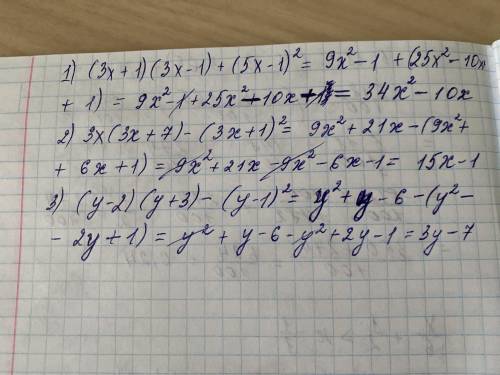 1) (3x+1)(3x-1)+(5x-1)²= 9x²-1 +(25x²-10x
+ 1) = 9x²-1+25x²-10x+1= 34x²-10x
2) 3x(3x+7)-(3x+1)²= 9x²+21x-(9x²+
+ 6x+1)= 9x²+21x-9x²-6x-1= 15x-1
3) (y-2)(y+3)-(y-1)²= y²+y-6-(y²-
- 2y+1)= y²+y-6-y²+2y-1=3y-7